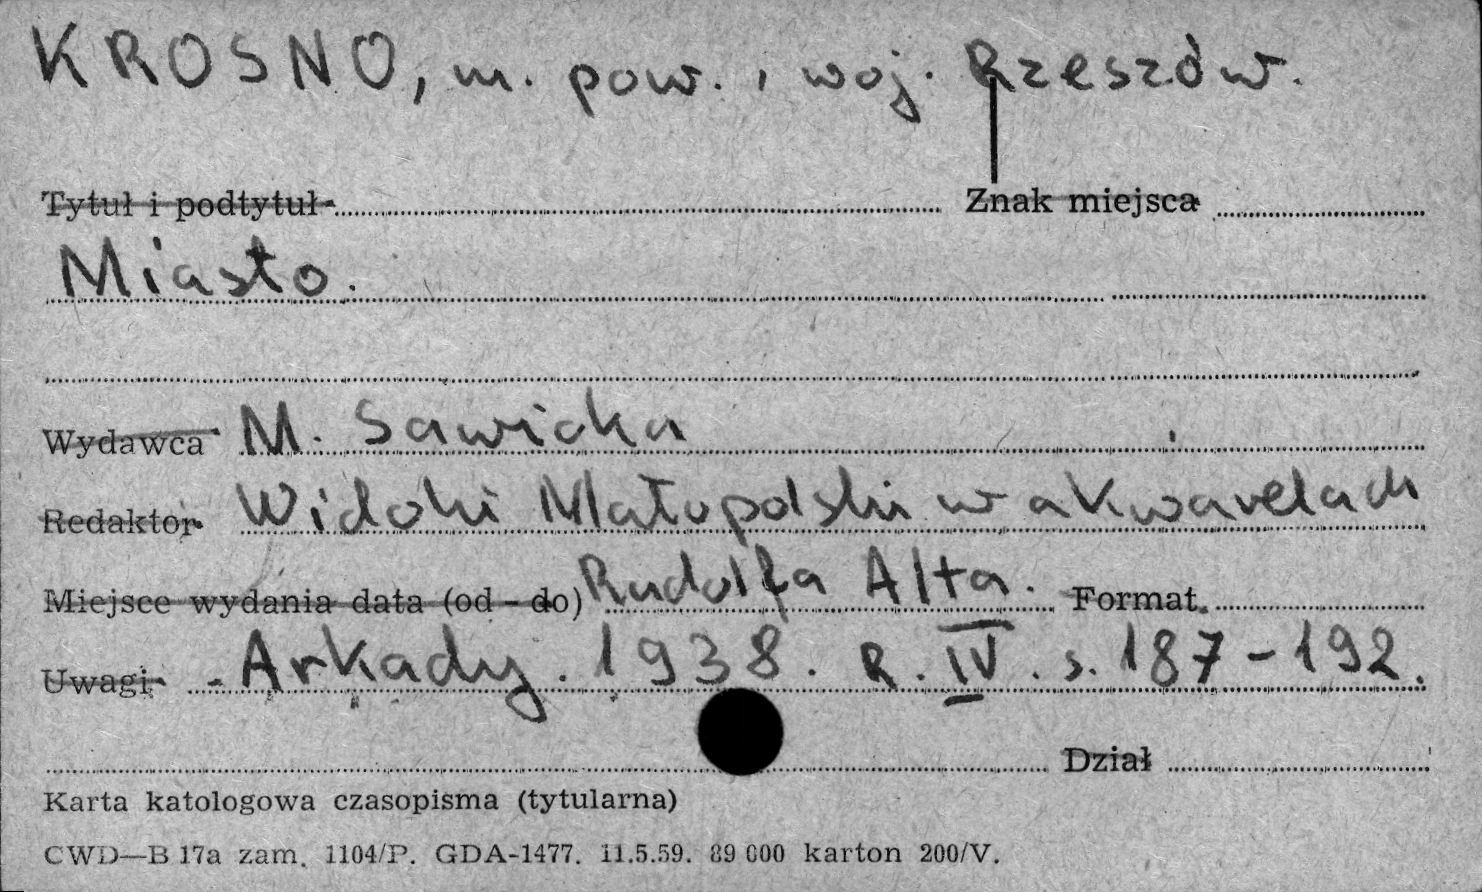 KROSNO, m. pow., woj. Rzeszów.
Tytuł i podtytuł Znak miejsca
Miasto.
Wydawca M. Sawicka
Redaktor Widoki Małopolski w akwarelach
Miejsce wydania data (od - do) Rudolfa Alta. Format
Uwagi - Arkady. 1938. R. IV. s. 187-192.
Dział
Karta katologowa czasopisma (tytularna)
CWD—B 17a zam. 1104/P. GDA-1477. 11.5.59. 89 000 karton 200/V.